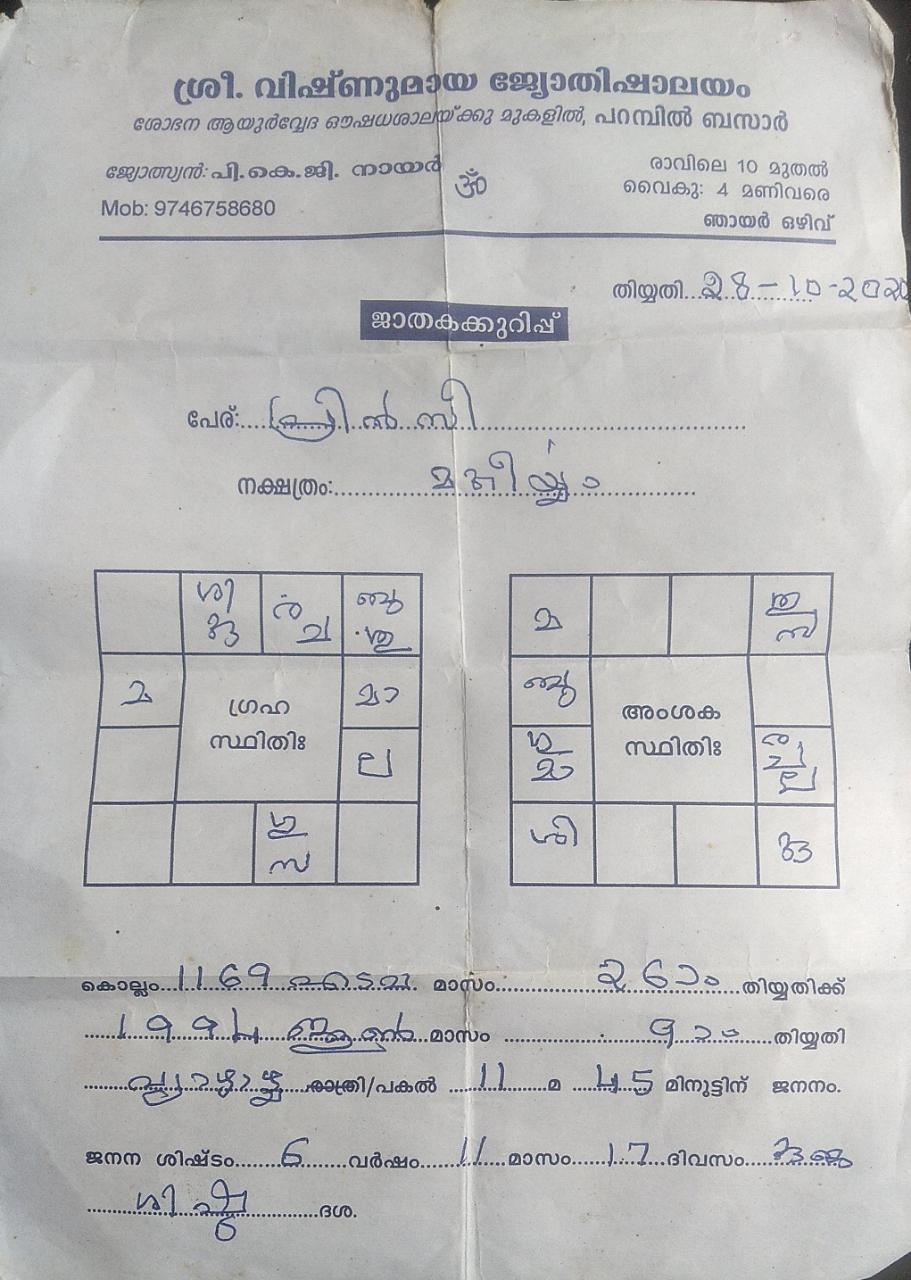 ശ്രീ. വിഷ്ണുമായ ജ്യോതിഷാലയം
ശോഭന ആയുർവ്വേദ ഔഷധശാലയ്ക്കു മുകളിൽ, പറമ്പിൽ ബസാർ
ജ്യോത്സ്യൻ: പി.കെ.ജി. നായർ ॐ രാവിലെ 10 മുതൽ
വൈകു: 4 മണിവരെ
Mob: 9746758680
ഞായർ ഒഴിവ്
തിയ്യതി 28-10-2020
ജാതകക്കുറിപ്പ്
പേര്: പ്രിൻസി
നക്ഷത്രം: മകീര്യം
ശി ര ബു
ച ശു
മ ഗ്രഹ മാ
സ്ഥിതിഃ
ല
ഗു
സ
മ
ബു അംശക
ഗു സ്ഥിതിഃ ര
മാ ച
ല
ശി
കൊല്ലം 1169 ഇടവ മാസം 26ാം തിയ്യതിക്ക്
1994 ജൂൺ മാസം 9ാം തിയ്യതി
വ്യാഴാഴ്ച രാത്രി/പകൽ 11 മ 45 മിനുട്ടിന് ജനനം.
ജനന ശിഷ്ടം 6 വർഷം 11 മാസം 17 ദിവസം കുജ
ശിഷ്ട ദശ.